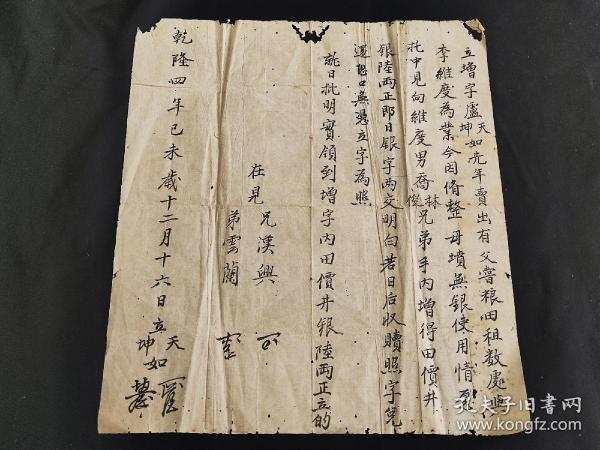 立增字盧天坤如先年賣出有父嘗粮田租数處與
李維度為業今因脩整母墳無銀使用情
托中見向維度男喬林俊兄弟手內增得田價井
銀陸両正即日銀字両交明白若日后收贖照字
還不得口無憑立字為照
即日批明實領到增字內田價井銀陸両正立的
在見 兄漢興
弟雲蘭
乾隆四年己未歲十二月十六日立 天坤如
孔夫子旧书网
www.kongfz.com